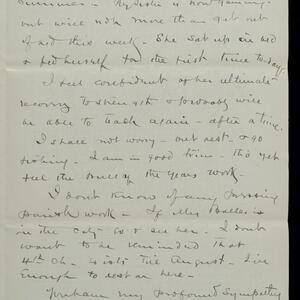 summer - My sister is now gaining -
but will not more than get out
of bed this week - She sat up in bed
& fed herself for the first time to-day.
I feel confident of her ultimate
recovery to strength & probably will
be able to teach again - after a time.
I shall not worry - but rest - & go
fishing - I am in good trim - tho' yet
feel the of the years work -
I don't know of any pressing
parish work - If Mrs is
in the city - go & see her - I don't
want to be reminded that
4th Ch. exists till August -
enough to rest on here -
You have my profound sympathy